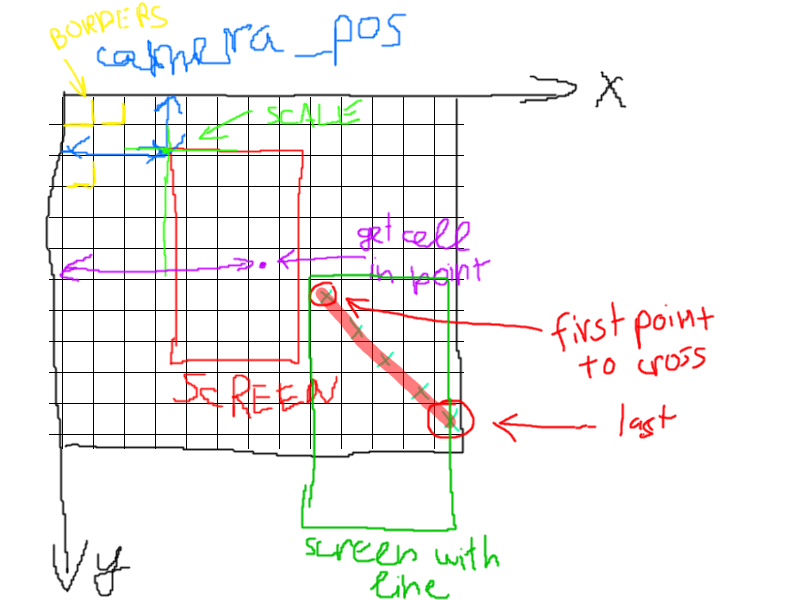 BORDERS
camera_pos
X
SCALE
get cell
in point
first point
to cross
SCREEN
last
screen with
line
y